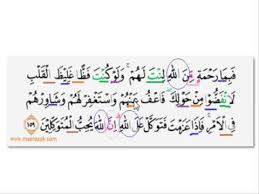 فَبِمَا رَحْمَةٍ مِّنَ اللَّهِ لِنتَ لَهُمْ ۖ وَلَوْ كُنتَ فَظًّا غَلِيظَ الْقَلْبِ
لَانفَضُّوا مِنْ حَوْلِكَ ۖ فَاعْفُ عَنْهُمْ وَاسْتَغْفِرْ لَهُمْ وَشَاوِرْهُمْ
فِي الْأَمْرِ ۖ فَإِذَا عَزَمْتَ فَتَوَكَّلْ عَلَى اللَّهِ ۚ إِنَّ اللَّهَ يُحِبُّ الْمُتَوَكِّلِينَ ١٥٩